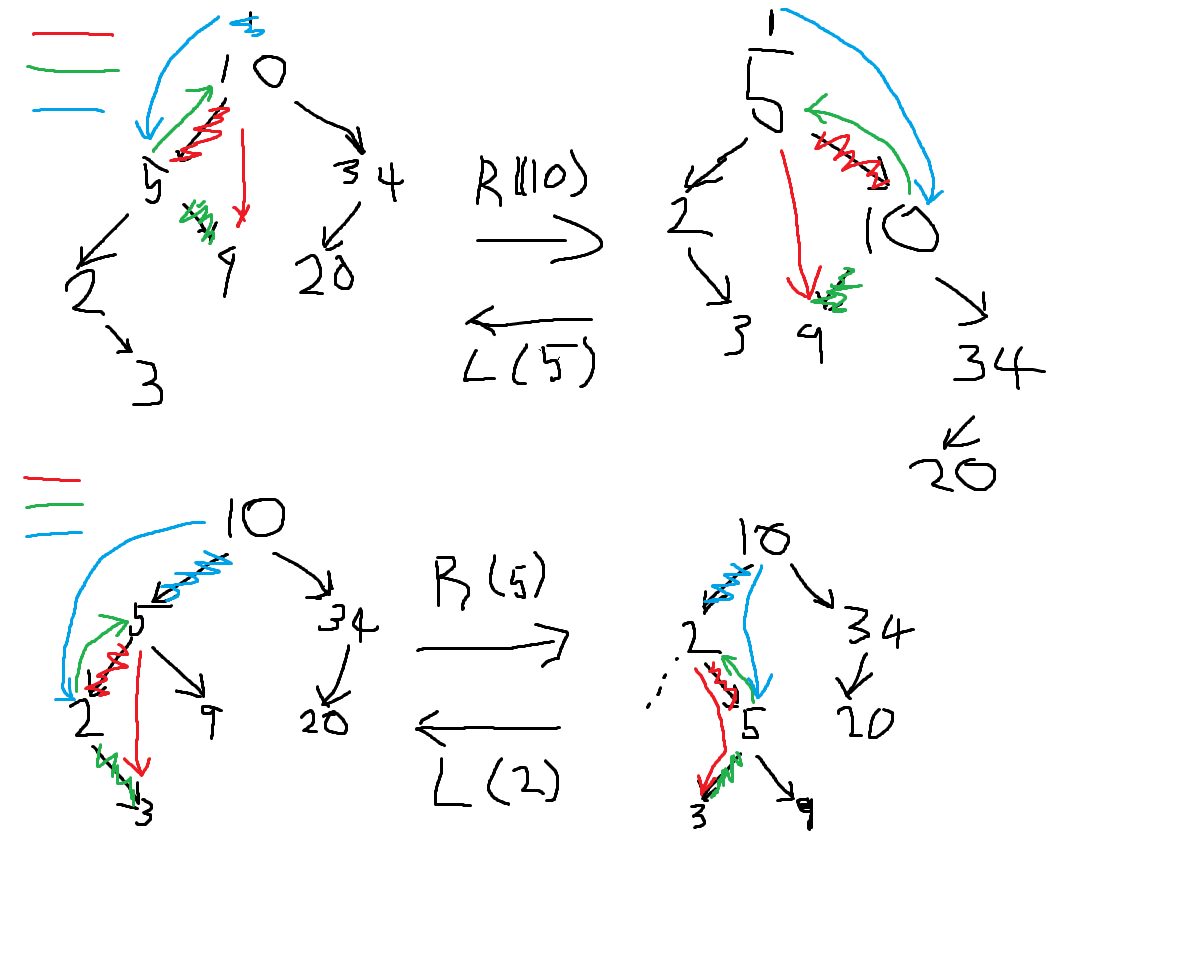 10
5 34
2 9 20
3
R(10)
L(5)
5
2 10
3 9 34
20
10
5 34
2 9 20
3
R(5)
L(2)
10
2 34
5 20
3 9